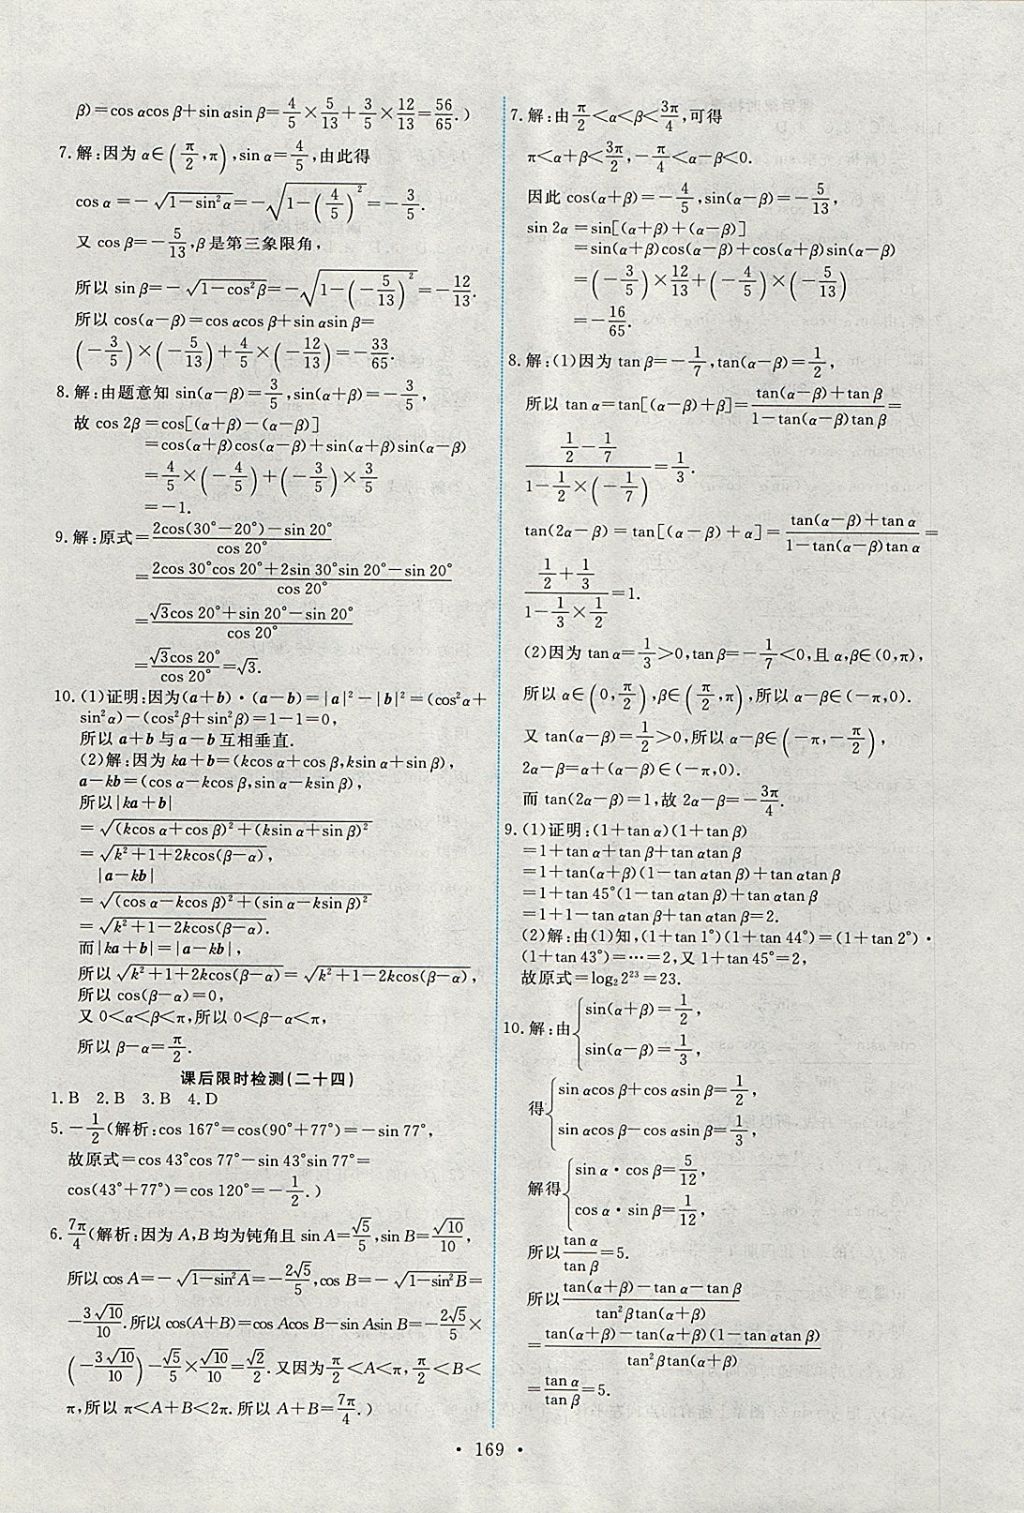 β)=cos αcos β+sin αsin β=4/5×5/13+3/5×12/13=56/65.)
7.解:因为 α∈(π/2,π),sin α=4/5,由此得
cos α=-√(1-sin²α)=-√(1-(4/5)²)=-3/5.
又 cos β=-5/13,β是第三象限角,
所以 sin β=-√(1-cos²β)=-√(1-(-5/13)²)=-12/13.
所以 cos(α-β)=cos αcos β+sin αsin β=
(-3/5)×(-5/13)+4/5×(-12/13)=-33/65.
8.解:由题意知 sin(α-β)=3/5,sin(α+β)=-3/5,
故 cos 2β=cos[(α+β)-(α-β)]
=cos(α+β)cos(α-β)+sin(α+β)sin(α-β)
=4/5×(-4/5)+(-3/5)×3/5
=-1.
9.解:原式=(2cos(30°-20°)-sin 20°)/cos 20°
=(2cos 30°cos 20°+2sin 30°sin 20°-sin 20°)/cos 20°
=(√3cos 20°+sin 20°-sin 20°)/cos 20°
=√3cos 20°/cos 20°=√3.
10.(1)证明:因为(a+b)·(a-b)=|a|²-|b|²=(cos²α+
sin²α)-(cos²β+sin²β)=1-1=0,
所以 a+b 与 a-b 互相垂直.
(2)解:因为 ka+b=(kcos α+cos β,ksin α+sin β),
a-kb=(cos α-kcos β,sin α-ksin β),
所以|ka+b|
=√((kcos α+cos β)²+(ksin α+sin β)²)
=√(k²+1+2kcos(β-α)),
|a-kb|
=√((cos α-kcos β)²+(sin α-ksin β)²)
=√(k²+1-2kcos(β-α)).
而|ka+b|=|a-kb|,
所以√(k²+1+2kcos(β-α))=√(k²+1-2kcos(β-α)),
所以 cos(β-α)=0,
又 0<α<β<π,所以 0<β-α<π,
所以 β-α=π/2.
课后限时检测(二十四)
1.B 2.B 3.B 4.D
5.-1/2(解析:cos 167°=cos(90°+77°)=-sin 77°,
故原式=cos 43°cos 77°-sin 43°sin 77°=
cos(43°+77°)=cos 120°=-1/2.)
6.7π/4(解析:因为 A,B 均为钝角且 sin A=√5/5,sin B=√10/10,
所以 cos A=-√(1-sin²A)=-2√5/5,cos B=-√(1-sin²B)=
-3√10/10.所以 cos(A+B)=cos Acos B-sin Asin B=-2√5/5×
(-3√10/10)-√5/5×√10/10=√2/2.又因为π/2<A<π,π/2<B<
π,所以 π<A+B<2π.所以 A+B=7π/4.)
7.解:由π/2<α<β<3π/4,可得
π<α+β<3π/2,-π/4<α-β<0.
因此 cos(α+β)=-4/5,sin(α-β)=-5/13,
sin 2α=sin[(α+β)+(α-β)]
=sin(α+β)cos(α-β)+cos(α+β)sin(α-β)
=(-3/5)×12/13+(-4/5)×(-5/13)
=-16/65.
8.解:(1)因为 tan β=-1/7,tan(α-β)=1/2,
所以 tan α=tan[(α-β)+β]=(tan(α-β)+tan β)/(1-tan(α-β)tan β)=
(1/2-1/7)/(1-1/2×(-1/7))=1/3.
tan(2α-β)=tan[(α-β)+α]=(tan(α-β)+tan α)/(1-tan(α-β)tan α)=
(1/2+1/3)/(1-1/3×1/2)=1.
(2)因为 tan α=1/3>0,tan β=-1/7<0,且 α,β∈(0,π),
所以 α∈(0,π/2),β∈(π/2,π),所以 α-β∈(-π,0).
又 tan(α-β)=1/2>0,所以 α-β∈(-π,-π/2),
2α-β=α+(α-β)∈(-π,0).
而 tan(2α-β)=1,故 2α-β=-3π/4.
9.(1)证明:(1+tan α)(1+tan β)
=1+tan α+tan β+tan αtan β
=1+tan(α+β)(1-tan αtan β)+tan αtan β
=1+tan 45°(1-tan αtan β)+tan αtan β
=1+1-tan αtan β+tan αtan β=2.
(2)解:由(1)知,(1+tan 1°)(1+tan 44°)=(1+tan 2°)·
(1+tan 43°)=…=2,又 1+tan 45°=2,
故原式=log₂2²³=23.
10.解:由{sin(α+β)=1/2,
sin(α-β)=1/3,
得{sin αcos β+cos αsin β=1/2,
sin αcos β-cos αsin β=1/3,
解得{sin α·cos β=5/12,
cos α·sin β=1/12,
所以tan α/tan β=5.
所以(tan(α+β)-tan α-tan β)/(tan²βtan(α+β))
=(tan(α+β)-tan(α+β)(1-tan αtan β))/(tan²βtan(α+β))
=tan α/tan β=5.
· 169 ·